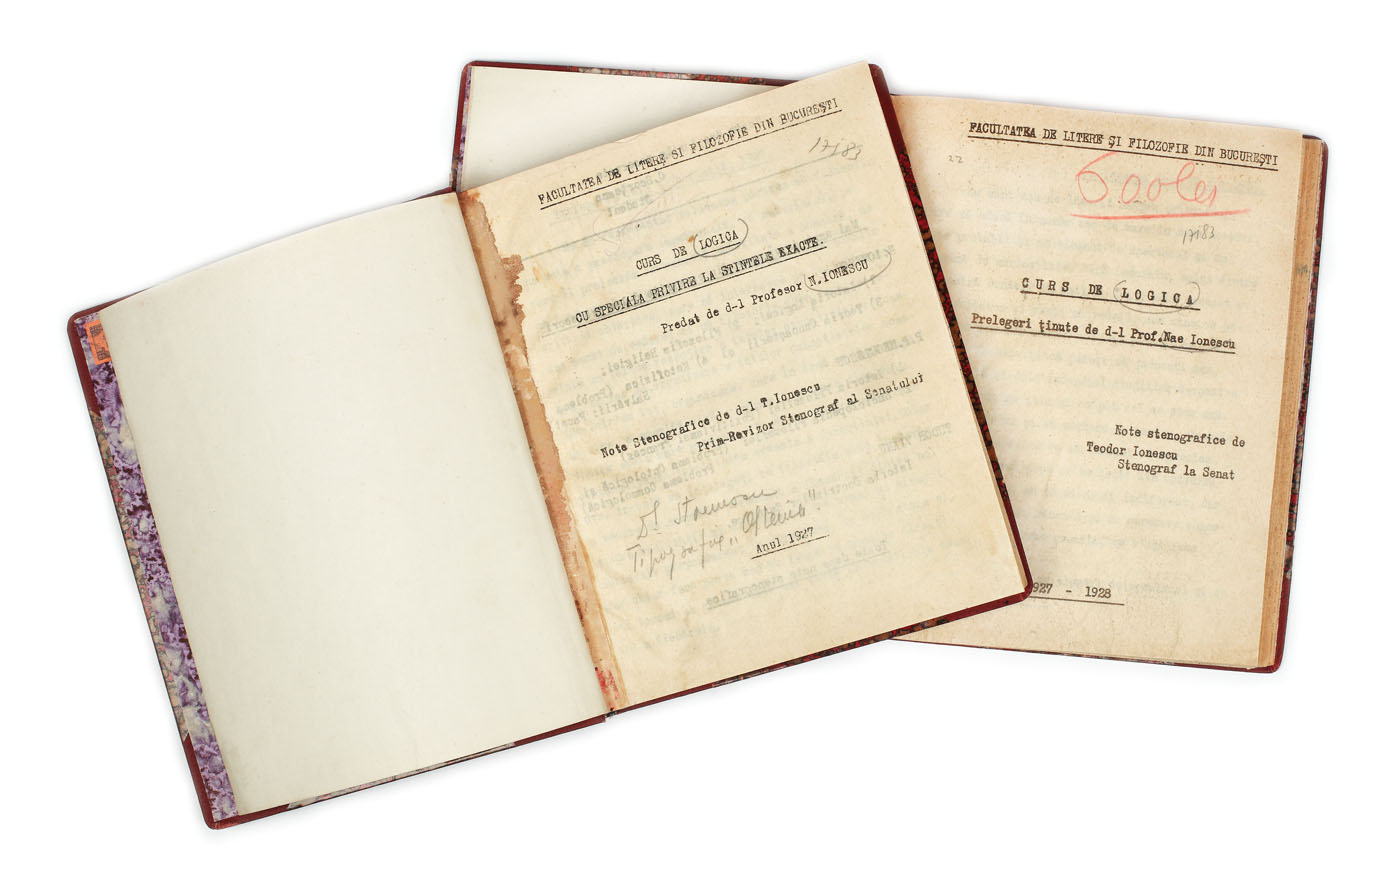 FACULTATEA DE LITERE SI FILOZOFIE DIN BUCUREȘTI
17183
CURS DE LOGICA
CU SPECIALA PRIVIRE LA STINTELE EXACTE.
Predat de d-l Profesor N.IONESCU
Note Stenografice de d-l T.Ionescu
Prim-Revizor Stenograf al Senatului
Tipografia „Oltenia"
Anul 1927
FACULTATEA DE LITERE ȘI FILOZOFIE DIN BUCUREȘTI
22
600 lei
17183
CURS DE LOGICA
Prelegeri ținute de d-l Prof.Nae Ionescu
Note stenografice de
Teodor Ionescu
Stenograf la Senat
927 - 1928